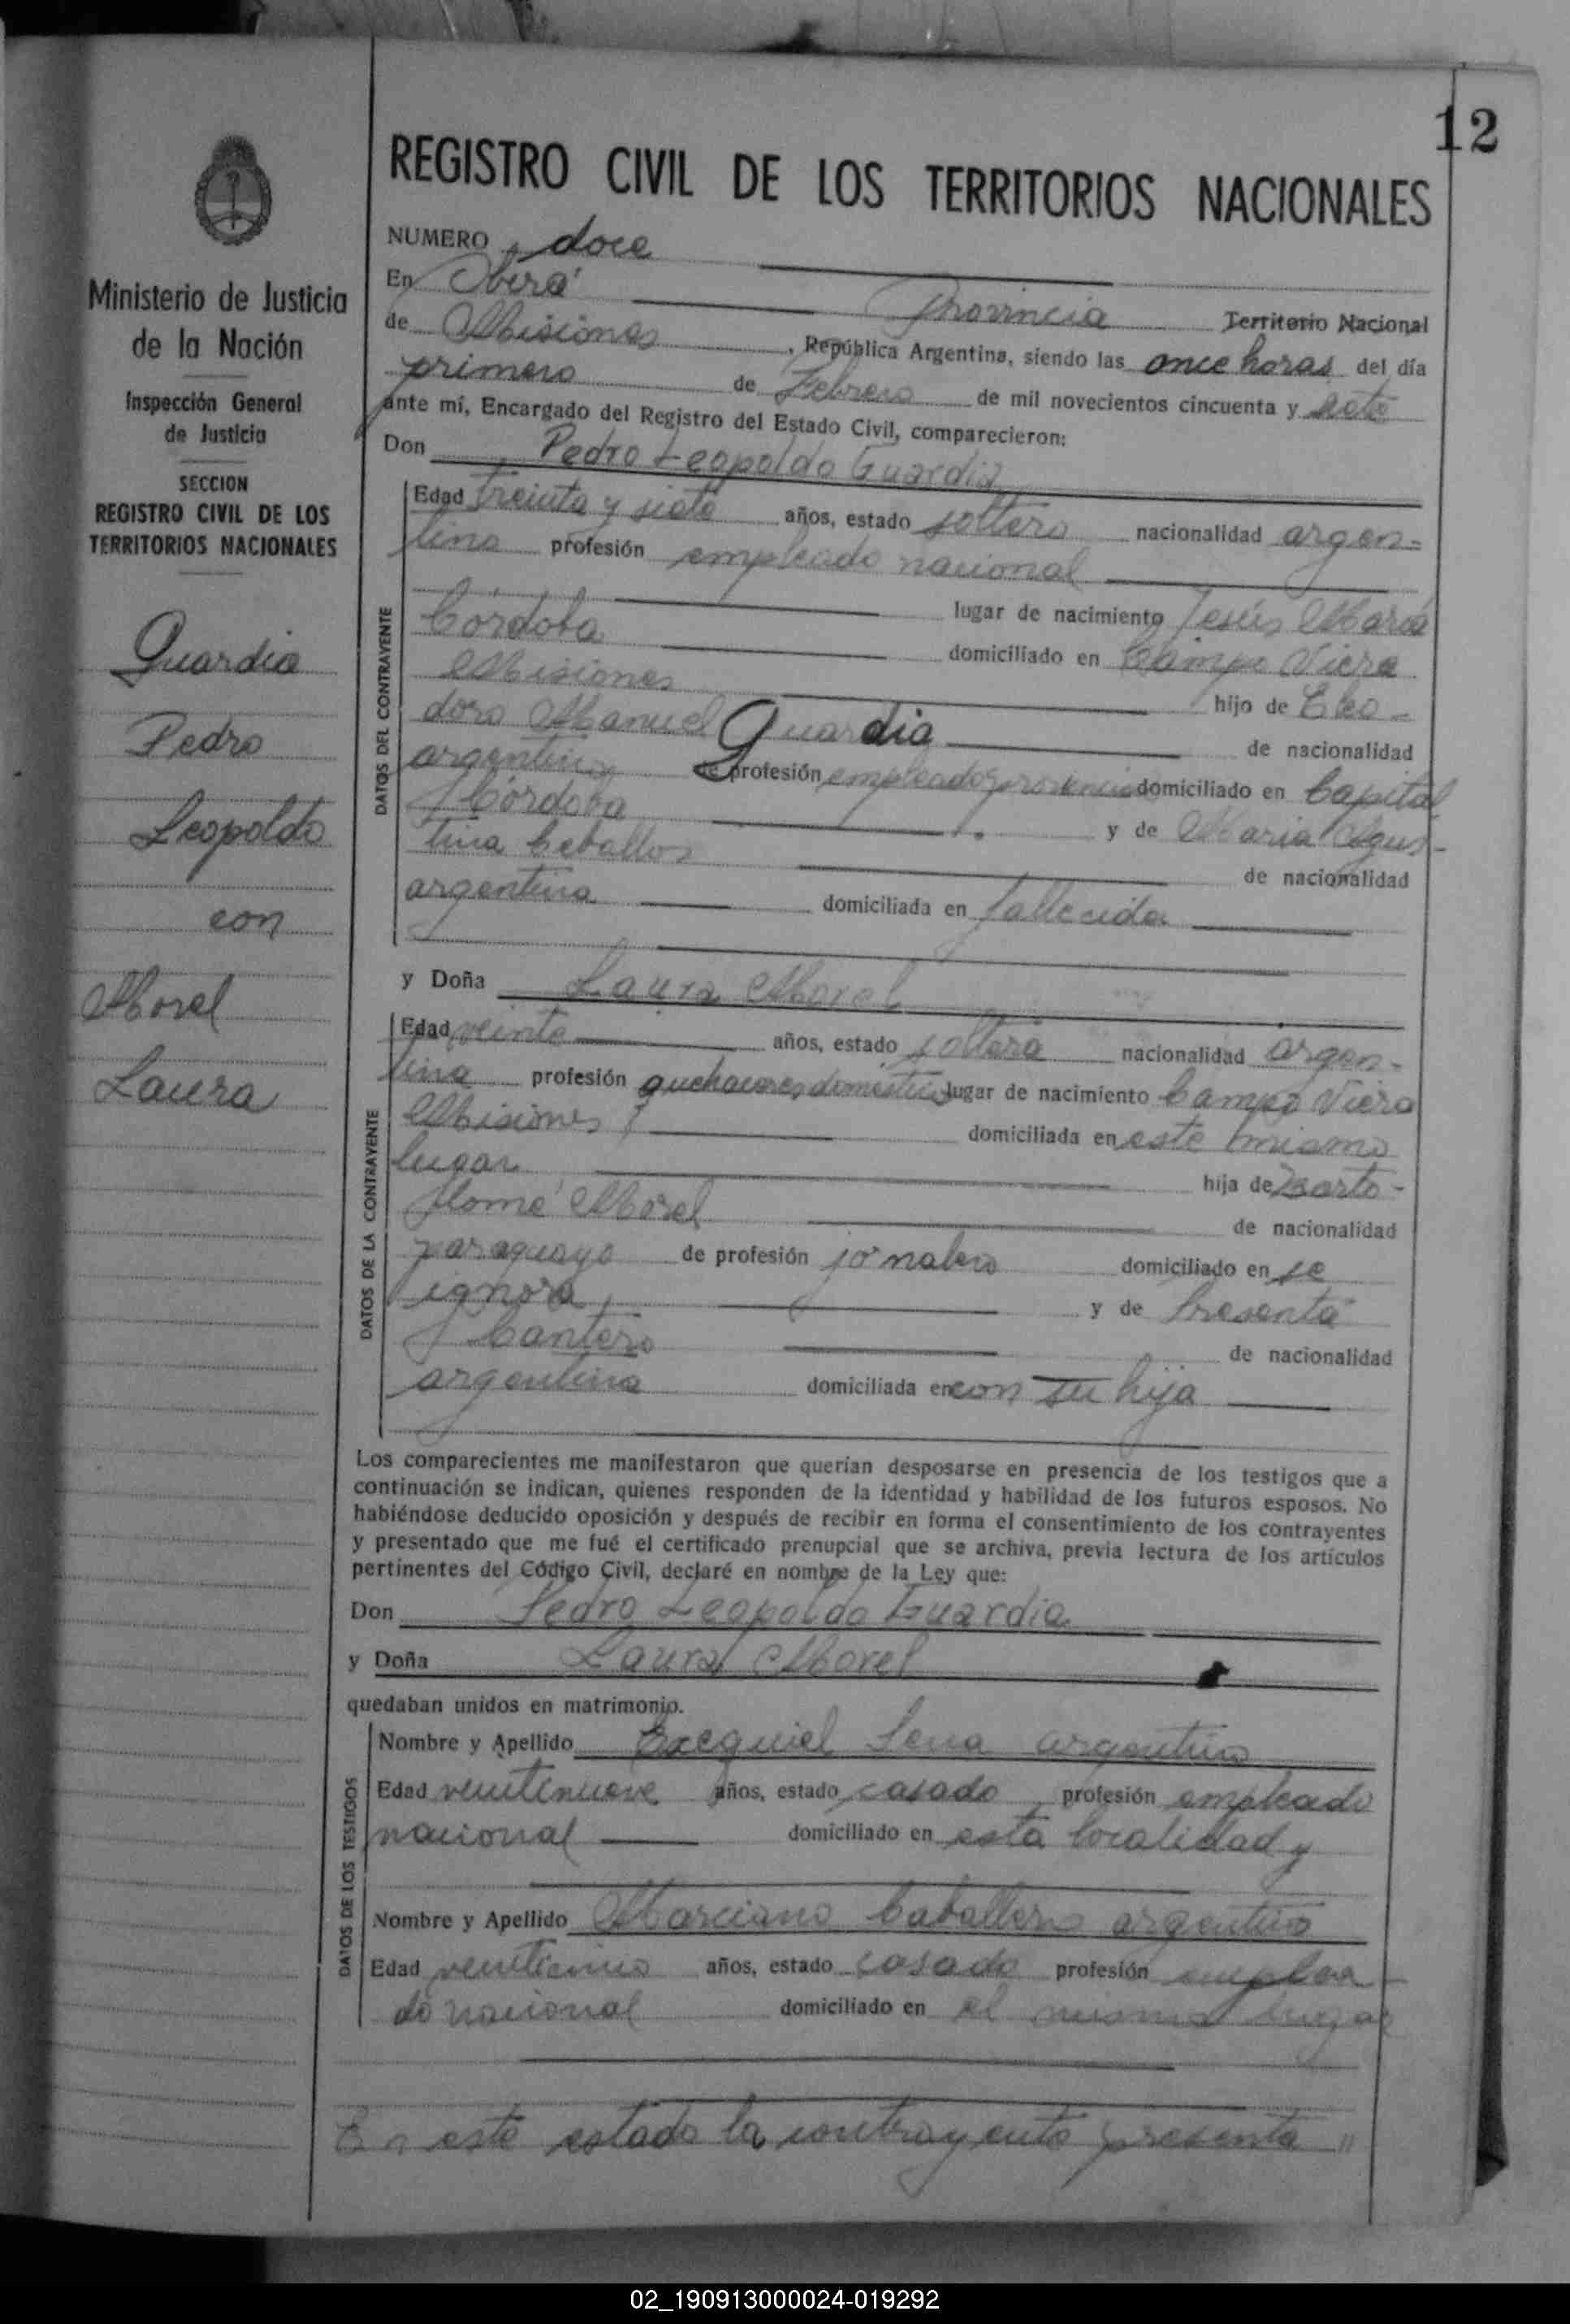 12
Ministerio de Justicia
de la Nación
Inspección General
de Justicia
SECCION
REGISTRO CIVIL DE LOS
TERRITORIOS NACIONALES
Guardia
Pedro
Leopoldo
con
Morel
Laura
REGISTRO CIVIL DE LOS TERRITORIOS NACIONALES
NUMERO doce
En Oberá Provincia Territorio Nacional
de Misiones, República Argentina, siendo las once horas del día
primero de Febrero de mil novecientos cincuenta y siete
ante mí, Encargado del Registro del Estado Civil, comparecieron:
Don Pedro Leopoldo Guardia
DATOS DEL CONTRAYENTE
Edad treinta y siete años, estado soltero nacionalidad argen=
tino profesión empleado nacional
lugar de nacimiento Jesús María
Córdoba domiciliado en Campo Viera
Misiones hijo de Eleo-
doro Manuel Guardia de nacionalidad
argentino de profesión empleado provincial domiciliado en Capital
Córdoba y de Maria Agus-
tina Ceballos de nacionalidad
argentina domiciliada en fallecida
y Doña Laura Morel
DATOS DE LA CONTRAYENTE
Edad veinte años, estado soltera nacionalidad argen-
tina profesión quehaceres domésticos lugar de nacimiento Campo Viera
Misiones domiciliada en este mismo
lugar hija de Barto-
lomé Morel de nacionalidad
paraguayo de profesión jornalero domiciliado en se
ignora, y de Cresenta
Cantero de nacionalidad
argentina domiciliada en con su hija
Los comparecientes me manifestaron que querían desposarse en presencia de los testigos que a
continuación se indican, quienes responden de la identidad y habilidad de los futuros esposos. No
habiéndose deducido oposición y después de recibir en forma el consentimiento de los contrayentes
y presentado que me fué el certificado prenupcial que se archiva, previa lectura de los artículos
pertinentes del Código Civil, declaré en nombre de la Ley que:
Don Pedro Leopoldo Guardia
y Doña Laura Morel
quedaban unidos en matrimonio.
DATOS DE LOS TESTIGOS
Nombre y Apellido Exequiel argentino
Edad veintinueve años, estado casado profesión empleado
nacional domiciliado en esta localidad y
Nombre y Apellido Marciano Caballero argentino
Edad veinticinco años, estado casado profesión emplea-
do nacional domiciliado en el mismo lugar
En este estado la contrayente presenta "
02_190913000024-019292